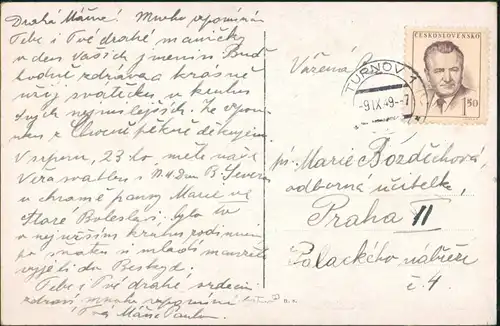 Drahá Máňo! Mnoho vzpomínám
Tebe i Tvé drahé maminky
v den Vašich jmenin. Buď
hodně zdráva a krásně
užij svátečku v kruhu
svých nejmilejších. Za vzpo-
mínku z Chocně pěkně děkujem.
V srpnu, 23 ho, měla naše
Věra svatbu s
v chrámě panny Marie ve
Staré Boleslavi. Bylo to
v nejužším kruhu rodinném
po sňatku si mladí manželé
vyjeli do Beskyd.
Tebe i Tvé drahé srdečně
zdraví mnoho vzpomíná
Tvá Máňa
ČESKOSLOVENSKO
1.50
TURNOV 1
-9.IX.49.-7
Vážená
pí. Marie Bozděchová,
odborná učitelka,
Praha II
Palackého nábřeží
č. 4.